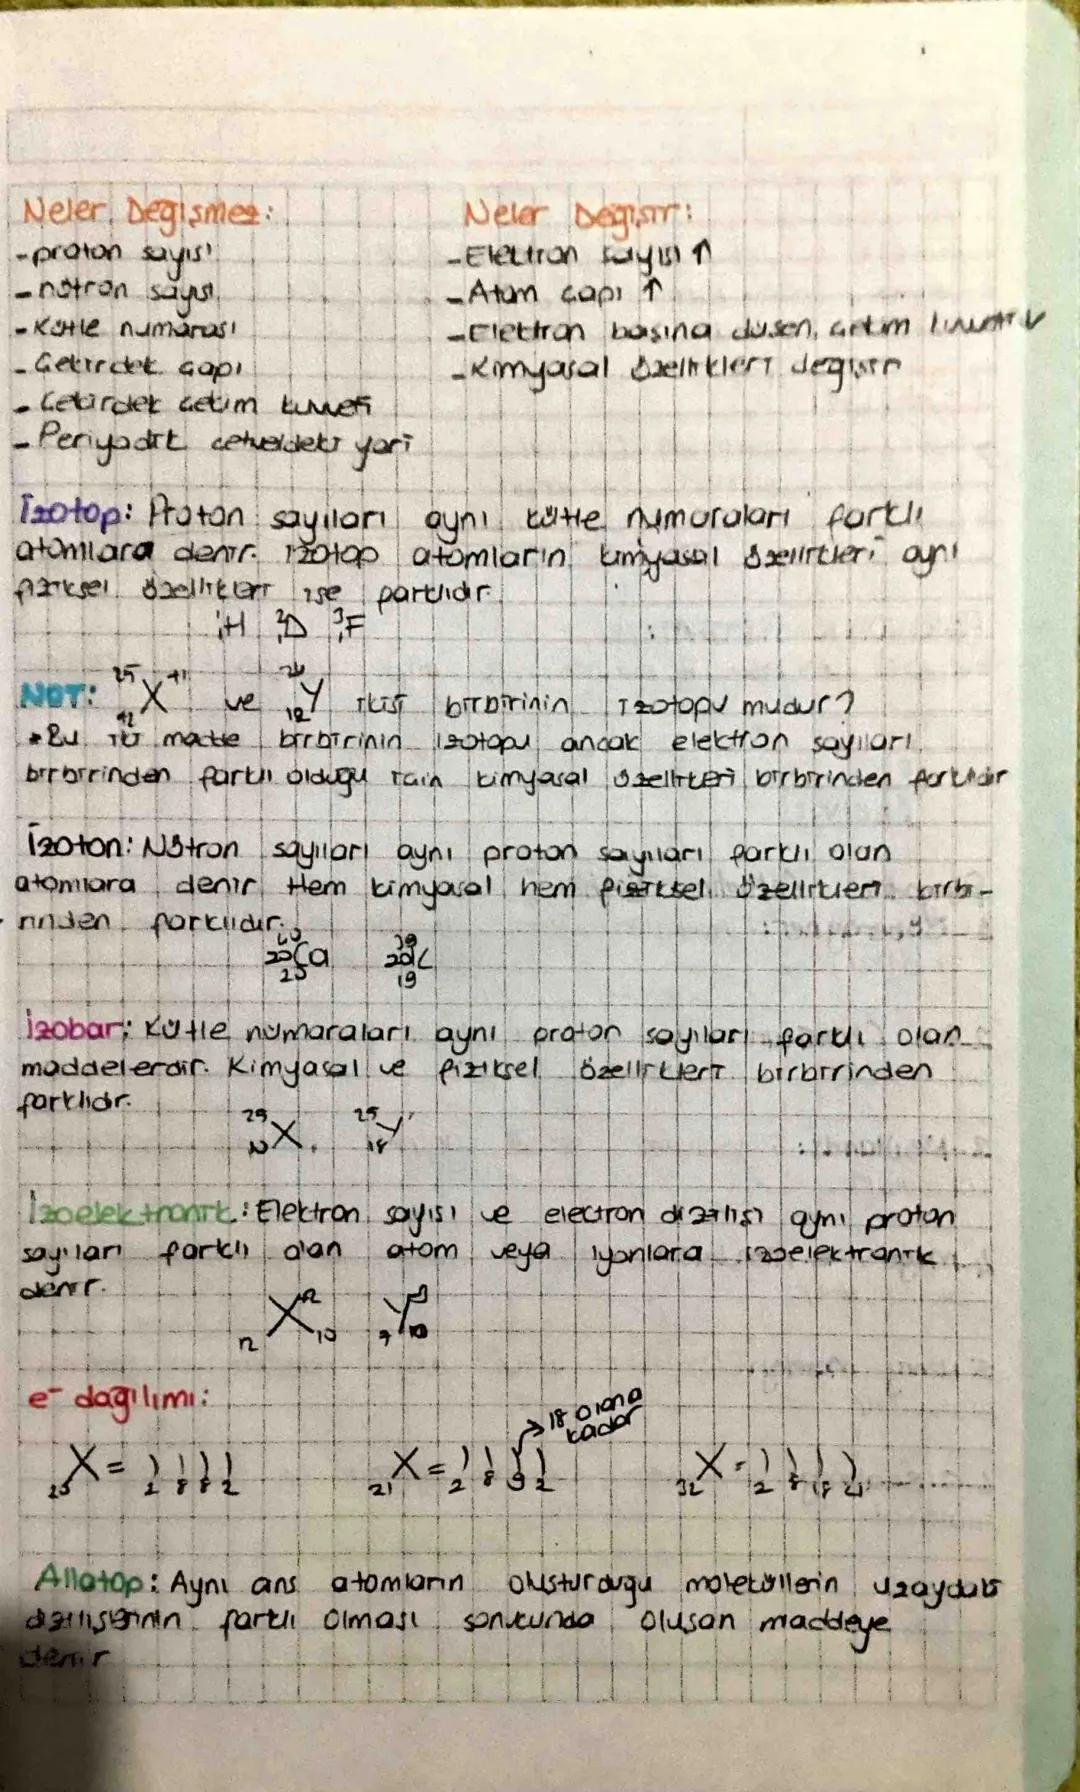 Neler Değişmez:
-proton sayısı
-nötron sayısı
-Kütle numarası
-Çekirdek çapı
-Çekirdek çekim kuvveti
-Periyodik cetveldeki yeri
Neler Değişir:
-Elektron sayısı ↑
-Atom çapı ↑
-Elektron başına düşen çekim kuvveti ↓
-Kimyasal özellikleri değişir
İzotop: Proton sayıları aynı kütle numaraları farklı
atomlara denir. İzotop atomların kimyasal özellikleri aynı
fiziksel özellikleri ise farklıdır.
¹₁H ²₁D ³₁F
NOT: ²⁵₁₂X⁺¹ ve ₁₂Y ikisi birbirinin izotopu mudur?
*Bu iki madde birbirinin izotopu ancak elektron sayıları
birbirinden farklı olduğu için kimyasal özellikleri birbirinden farklıdır
İzoton: Nötron sayıları aynı proton sayıları farklı olan
atomlara denir. Hem kimyasal hem fiziksel özellikleri birbi-
rinden farklıdır.
Ca
İzobar: Kütle numaraları aynı proton sayıları farklı olan
maddelerdir. Kimyasal ve fiziksel özellikleri birbirinden
farklıdır.
X Y
İzoelektronik: Elektron sayısı ve electron dizilişi aynı proton
sayıları farklı olan atom veya iyonlara izoelektronik
denir.
₁₂X ₁₀ Y ₁₀
e⁻ dağılımı:
18 olana
kadar
₂₀X = ) ) ) ) 2 8 8 2
₂₁X = ) ) ) ) 2 8 9 2
₃₂X = ) ) ) ) 2 8 18 4
Allotop: Aynı cins atomların oluşturduğu moleküllerin uzaydaki
dizilişlerinin farklı olması sonucunda oluşan maddeye
denir